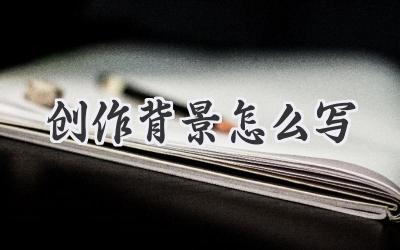 创作背景怎么写